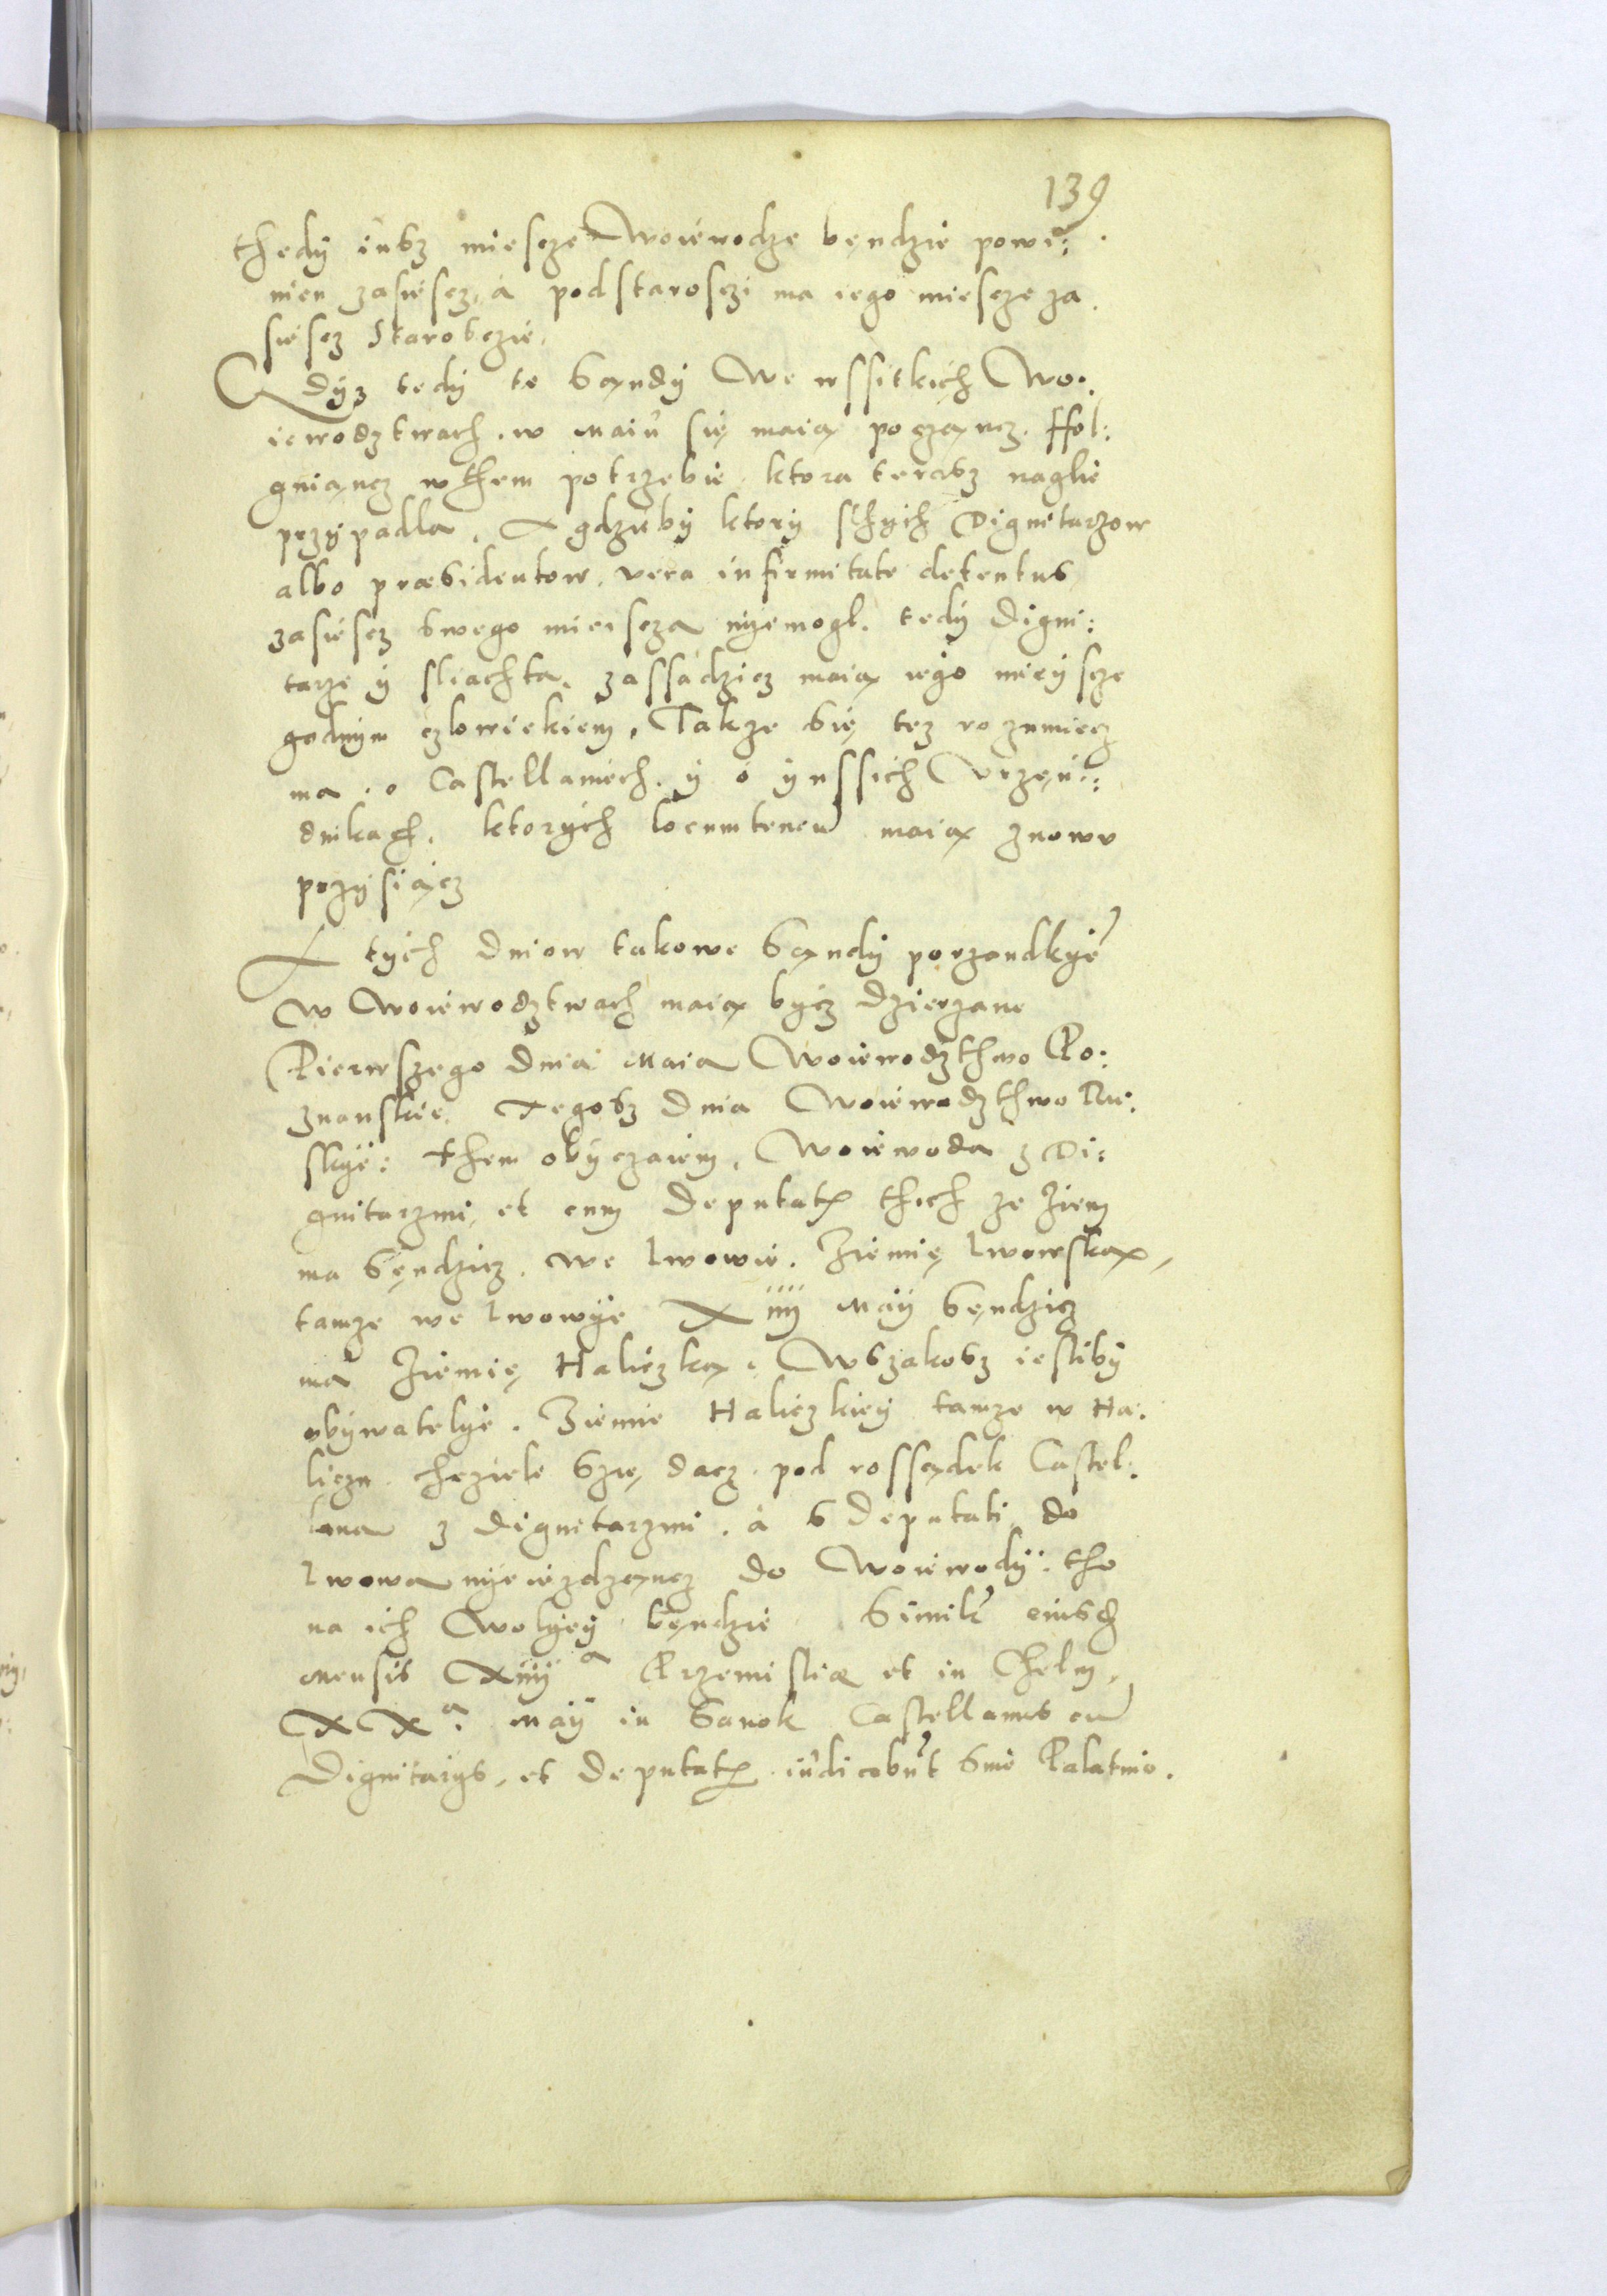 139
thedy iusz miescze Woiewodze bendzie powi:
nien zasiescz, a podstarosczi ma iego miescze za
siescz Starosczie.
Gdyz tedy te sąndy We wssitkich Wo:
iewodztwach. w Maiu się maią począncz. ffol:
gniąncz w them potrzebie ktora terasz naglie
przypadla. A gdzieby ktory sthych Dignitarzow
albo præsidentow. vera infirmitate detentus
zasiescz swego mieiscza nyemogl. tedy digni:
tarze y sliachta. zassadzicz maią iego mieyscze
godnym czlowiekiem. Takze się tez rozumiecz
ma. o Castellaniech. y o ynssich Vrzęn:
dnikach. ktorych locumtenen maią znowu
przysiącz
A tych dniow takowe sąndy porzandkye
w Woiewodztwach maią bycz dzierzane
Pierwszego dnia Maia Woiewodzthwo Po:
znanskie. Tegosz dnia Woiewodzthwo Ru:
skye: them obyczaiem. Woiewoda z Di:
gnitarzmi, et cum Deputatis thich ze ziem
ma sęndzicz. we lwowie. Ziemię lwowską,
tamze we lwowye Xiiij Maij sęndzicz
ma Ziemię Haliczką. Wszakosz iesliby
obywatelye. Ziemie Haliczkiey tamze w Ha:
liczu. chcziele szię dacz. pod rossądek Castel:
lana z dignitarzmi. a s deputati do
lwowa nyeiezdząncz do Woiewody: tho
na ich Wolyey bęndzie. Similr eiusd
mensis Xiiij a Przemisliæ et in Chelm,
XX a. Maij in Sanok Castellanus cu
Dignitarijs, et deputatis iudicabunt sine Palatino.